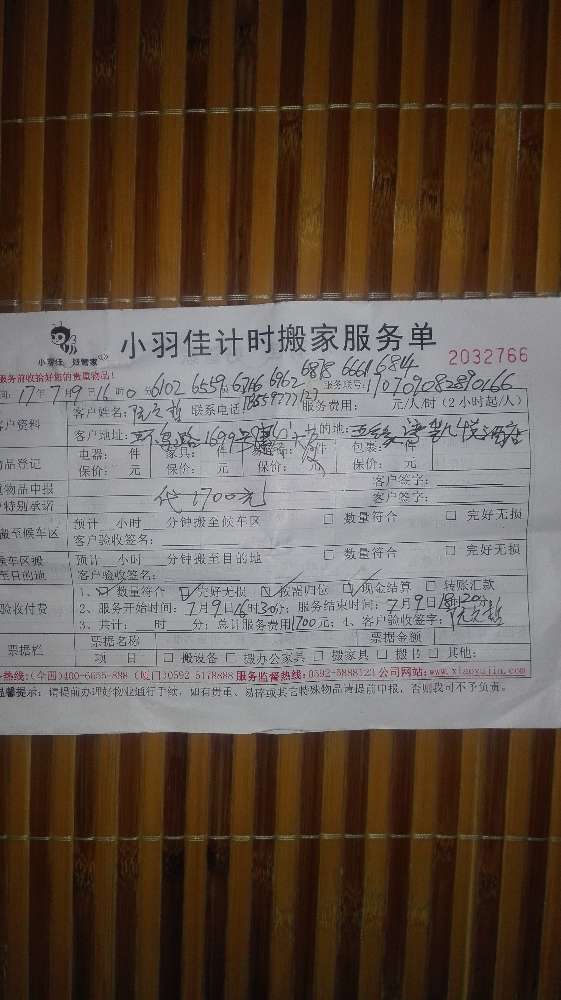 小羽佳 好管家
小羽佳计时搬家服务单
2032766
服务前收拾好您的贵重物品!
6102 6559 6746 6962 6878 6661 6814
间: 17年7月9日16时0分 服务联号: 170709082890166
客户姓名: 联系电话 服务费用: 元/人/时 (2小时起/人)
客户资料
客户地址: 1699号 目的地:
物品登记
电器: 件 家具: 件 件 包装: 件
保价: 元 保价: 元 保价: 元 保价: 元
物品申报 客户签字:
特别承诺 代1700元 客户签字:
搬至候车区
预计 小时 分钟搬至候车区 □ 数量符合 □ 完好无损
客户验收签名:
候车区搬至目的地
预计 小时 分钟搬至目的地 □ 数量符合 □ 完好无损
客户验收签名:
验收付费
1、□ 数量符合 □ 完好无损 □ 按需归位 □ 现金结算 □ 转账汇款
2、服务开始时间: 7月9日16时30分; 服务结束时间: 7月9日18时20分
3、共计: 时 分; 总计服务费用1700元; 4、客户验收签字:
票据栏
票据名称 票据金额
项 目 □ 搬设备 □ 搬办公家具 □ 搬家具 □ 搬书 □ 其他:
热线: (全国)400-6655-888 (厦门)0592 5178888 服务监督热线: 0592-5888123 公司网站: www.xiaoyujia.com
温馨提示: 请提前办理好物业通行手续, 如有贵重、易碎或其它特殊物品请提前申报, 否则我司不予负责。